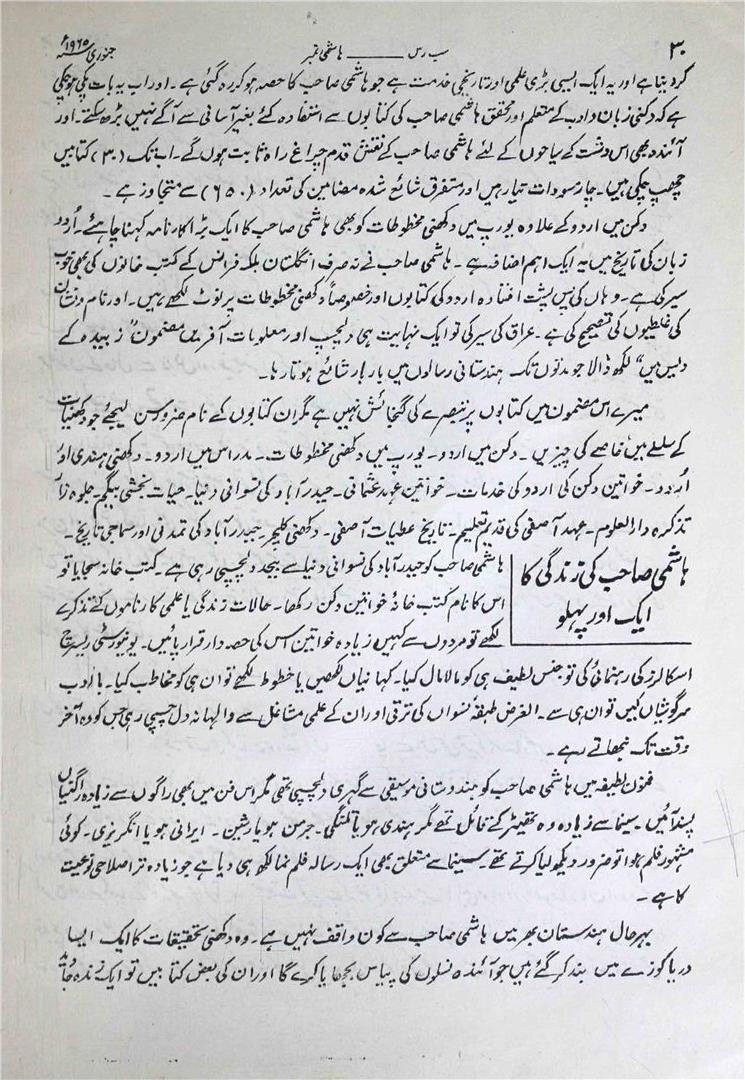 ۳۰ سب رس ــــــ ہاشمی نمبر جنوری ۱۹۶۵ء
کر دیتا ہے اور یہ ایک ایسی بڑی علمی اور تاریخی خدمت ہے جو ہاشمی صاحب کا حصہ ہو کر رہ گئی ہے ۔ اور اب یہ بات پکی ہو چکی
ہے کہ دکنی زبان و ادب کے متعلم اور محقق ہاشمی صاحب کی کتابوں سے استفادہ کئے بغیر آسانی سے آگے نہیں بڑھ سکتے ۔ اور
آئندہ بھی اس دشت کے سیاحوں کے لئے ہاشمی صاحب کے نقش قدم چراغ راہ ثابت ہوں گے ۔ اب تک (۳۰) کتابیں
چھپ چکی ہیں ۔ چار مسودات تیار ہیں اور متفرق شائع شدہ مضامین کی تعداد (۶۵۰) سے متجاوز ہے ۔
دکن میں اردو کے علاوہ یورپ میں دکھنی مخطوطات کو بھی ہاشمی صاحب کا ایک بڑا کارنامہ کہنا چاہئے ۔ اُردو
زبان کی تاریخ میں یہ ایک اہم اضافہ ہے ۔ ہاشمی صاحب نے نہ صرف انگلستان بلکہ فرانس کے کتب خانوں کی بھی خوب
سیر کی ہے ۔ وہاں کی پس پشت افتادہ اردو کی کتابوں اور خصوصاً دکھنی مخطوطات پر نوٹ لکھے ہیں ۔ اور نام و نشان
کی غلطیوں کی تصحیح کی ہے ۔ عراق کی سیر کی تو ایک نہایت ہی دلچسپ اور معلومات آفریں مضمون "زبیدہ کے
دیس میں" لکھ ڈالا جو مدتوں تک ہندستانی رسالوں میں بار بار شائع ہوتا رہا ۔
میرے اس مضمون میں کتابوں پر تبصرے کی گنجائش نہیں ہے مگر ان کتابوں کے نام ضرور سن لیجئے جو دکھنیات
کے سلسلے میں خاصے کی چیز ہیں ۔ دکن میں اردو ۔ یورپ میں دکھنی مخطوطات ۔ مدراس میں اردو ۔ دکھنی ہندی اور
اُردو ۔ خواتین دکن کی اردو کی خدمات ۔ خواتین عہد عثمانی ۔ حیدرآباد کی نسوانی دنیا ۔ حیات بخشی بیگم ۔ جلوہ زار
تذکرہ دارالعلوم ۔ عہد آصفی کی قدیم تعلیم ۔ تاریخ عطیات آصفی ۔ دکھنی کلچر ۔ حیدرآباد کی تمدنی اور سماجی تاریخ ۔
ہاشمی صاحب کی زندگی کا
ایک اور پہلو
ہاشمی صاحب کو حیدرآباد کی نسوانی دنیا سے بیحد دلچسپی رہی ہے ۔ کتب خانہ سجایا تو
اس کا نام کتب خانہ خواتین دکن رکھا ۔ حالات زندگی یا علمی کارناموں کے تذکرے
لکھے تو مردوں سے کہیں زیادہ خواتین اس کی حصہ دار قرار پائیں ۔ یونیورسٹی ریسرچ
اسکالرز کی رہنمائی کی تو جنس لطیف ہی کو مالامال کیا ۔ کہانیاں لکھیں یا خطوط لکھے تو ان ہی کو مخاطب کیا ۔ با ادب
سرگوشیاں کیں تو ان ہی سے ۔ الغرض طبقہ نسواں کی ترقی اور ان کے علمی مشاغل سے والہانہ دل چسپی رہی جس کو وہ آخر
وقت تک نبھاتے رہے ۔
فنون لطیفہ میں ہاشمی صاحب کو ہندوستانی موسیقی سے گہری دلچسپی تھی مگر اس فن میں بھی راگوں سے زیادہ راگنیاں
پسند آئیں ۔ سینما سے زیادہ وہ تھیٹر کے قائل تھے مگر ہندی ہو یا تلنگی ۔ جرمن ہو یا رشین ۔ ایرانی ہو یا انگریزی ۔ کوئی
مشہور فلم ہوا تو ضرور دیکھ لیا کرتے تھے ۔ سینما سے متعلق بھی ایک رسالہ فلم نما لکھ ہی دیا ہے جو زیادہ تر اصلاحی نوعیت
کا ہے ۔
بہرحال ہندستان بھر میں ہاشمی صاحب سے کون واقف نہیں ہے ۔ وہ دکھنی تحقیقات کا ایک ایسا
دریا کوزے میں بند کر گئے ہیں جو آئندہ نسلوں کی پیاس بجھایا کرے گا اور ان کی بعض کتابیں تو ایک زندہ جائد